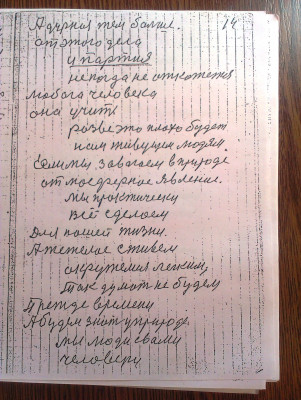 А дурная тем более. 14
от этого дела
и партия
никогда не откажется
любого человека
она учить
разве это плохо будет
нам живущим людям.
Если мы завагаем в природе
отмосферное явление.
мы практически
всё сделаем
Для нашей жизни.
А тежелое стихем
окружения легкий,
так думать не будем
Прежде времени
А будем знать у природе.
мы люди свами
человеки